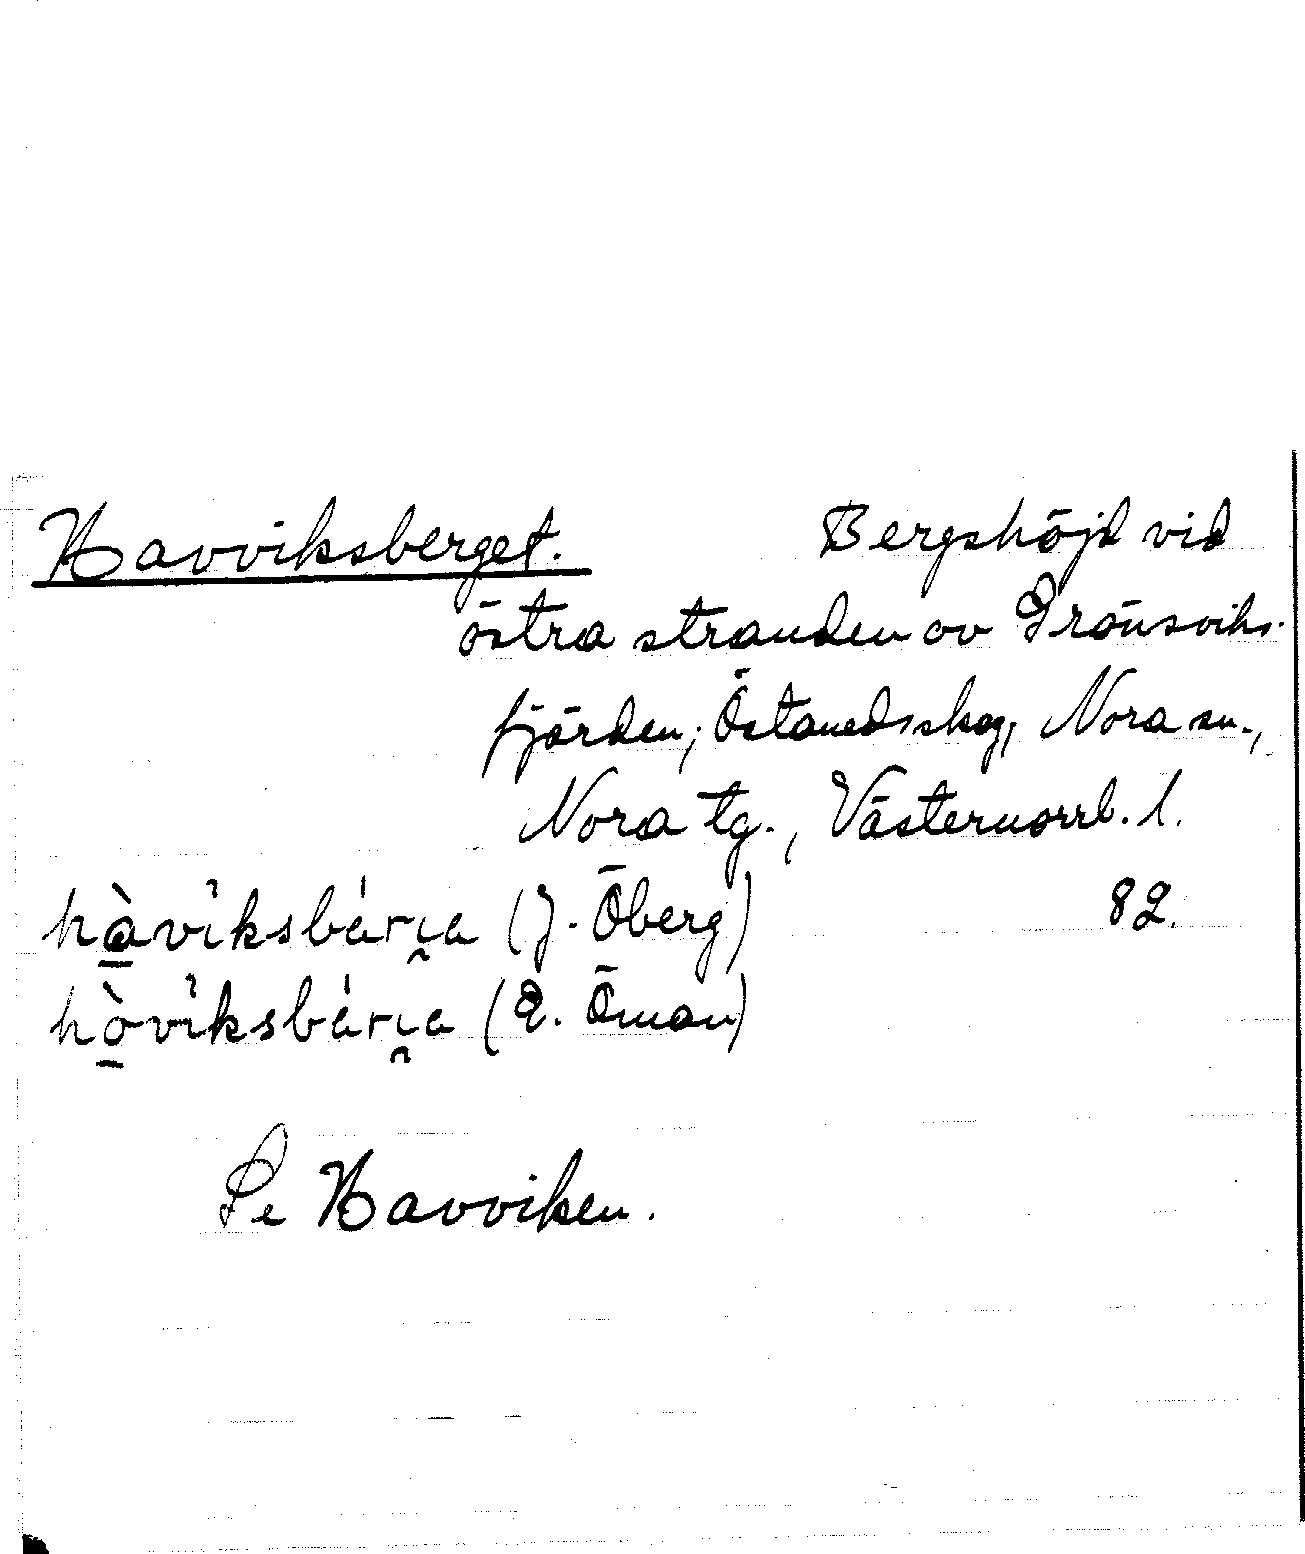 Havviksberget. Bergshöjd vid
östra stranden av Grönsviks-
fjärden, Östanedsskog, Nora sn.,
Nora tg., Västernorrl. l.
hàviksbárɩa (J. Öberg) 82.
hòviksbárɩa (E. Öman)
Se Havviken.